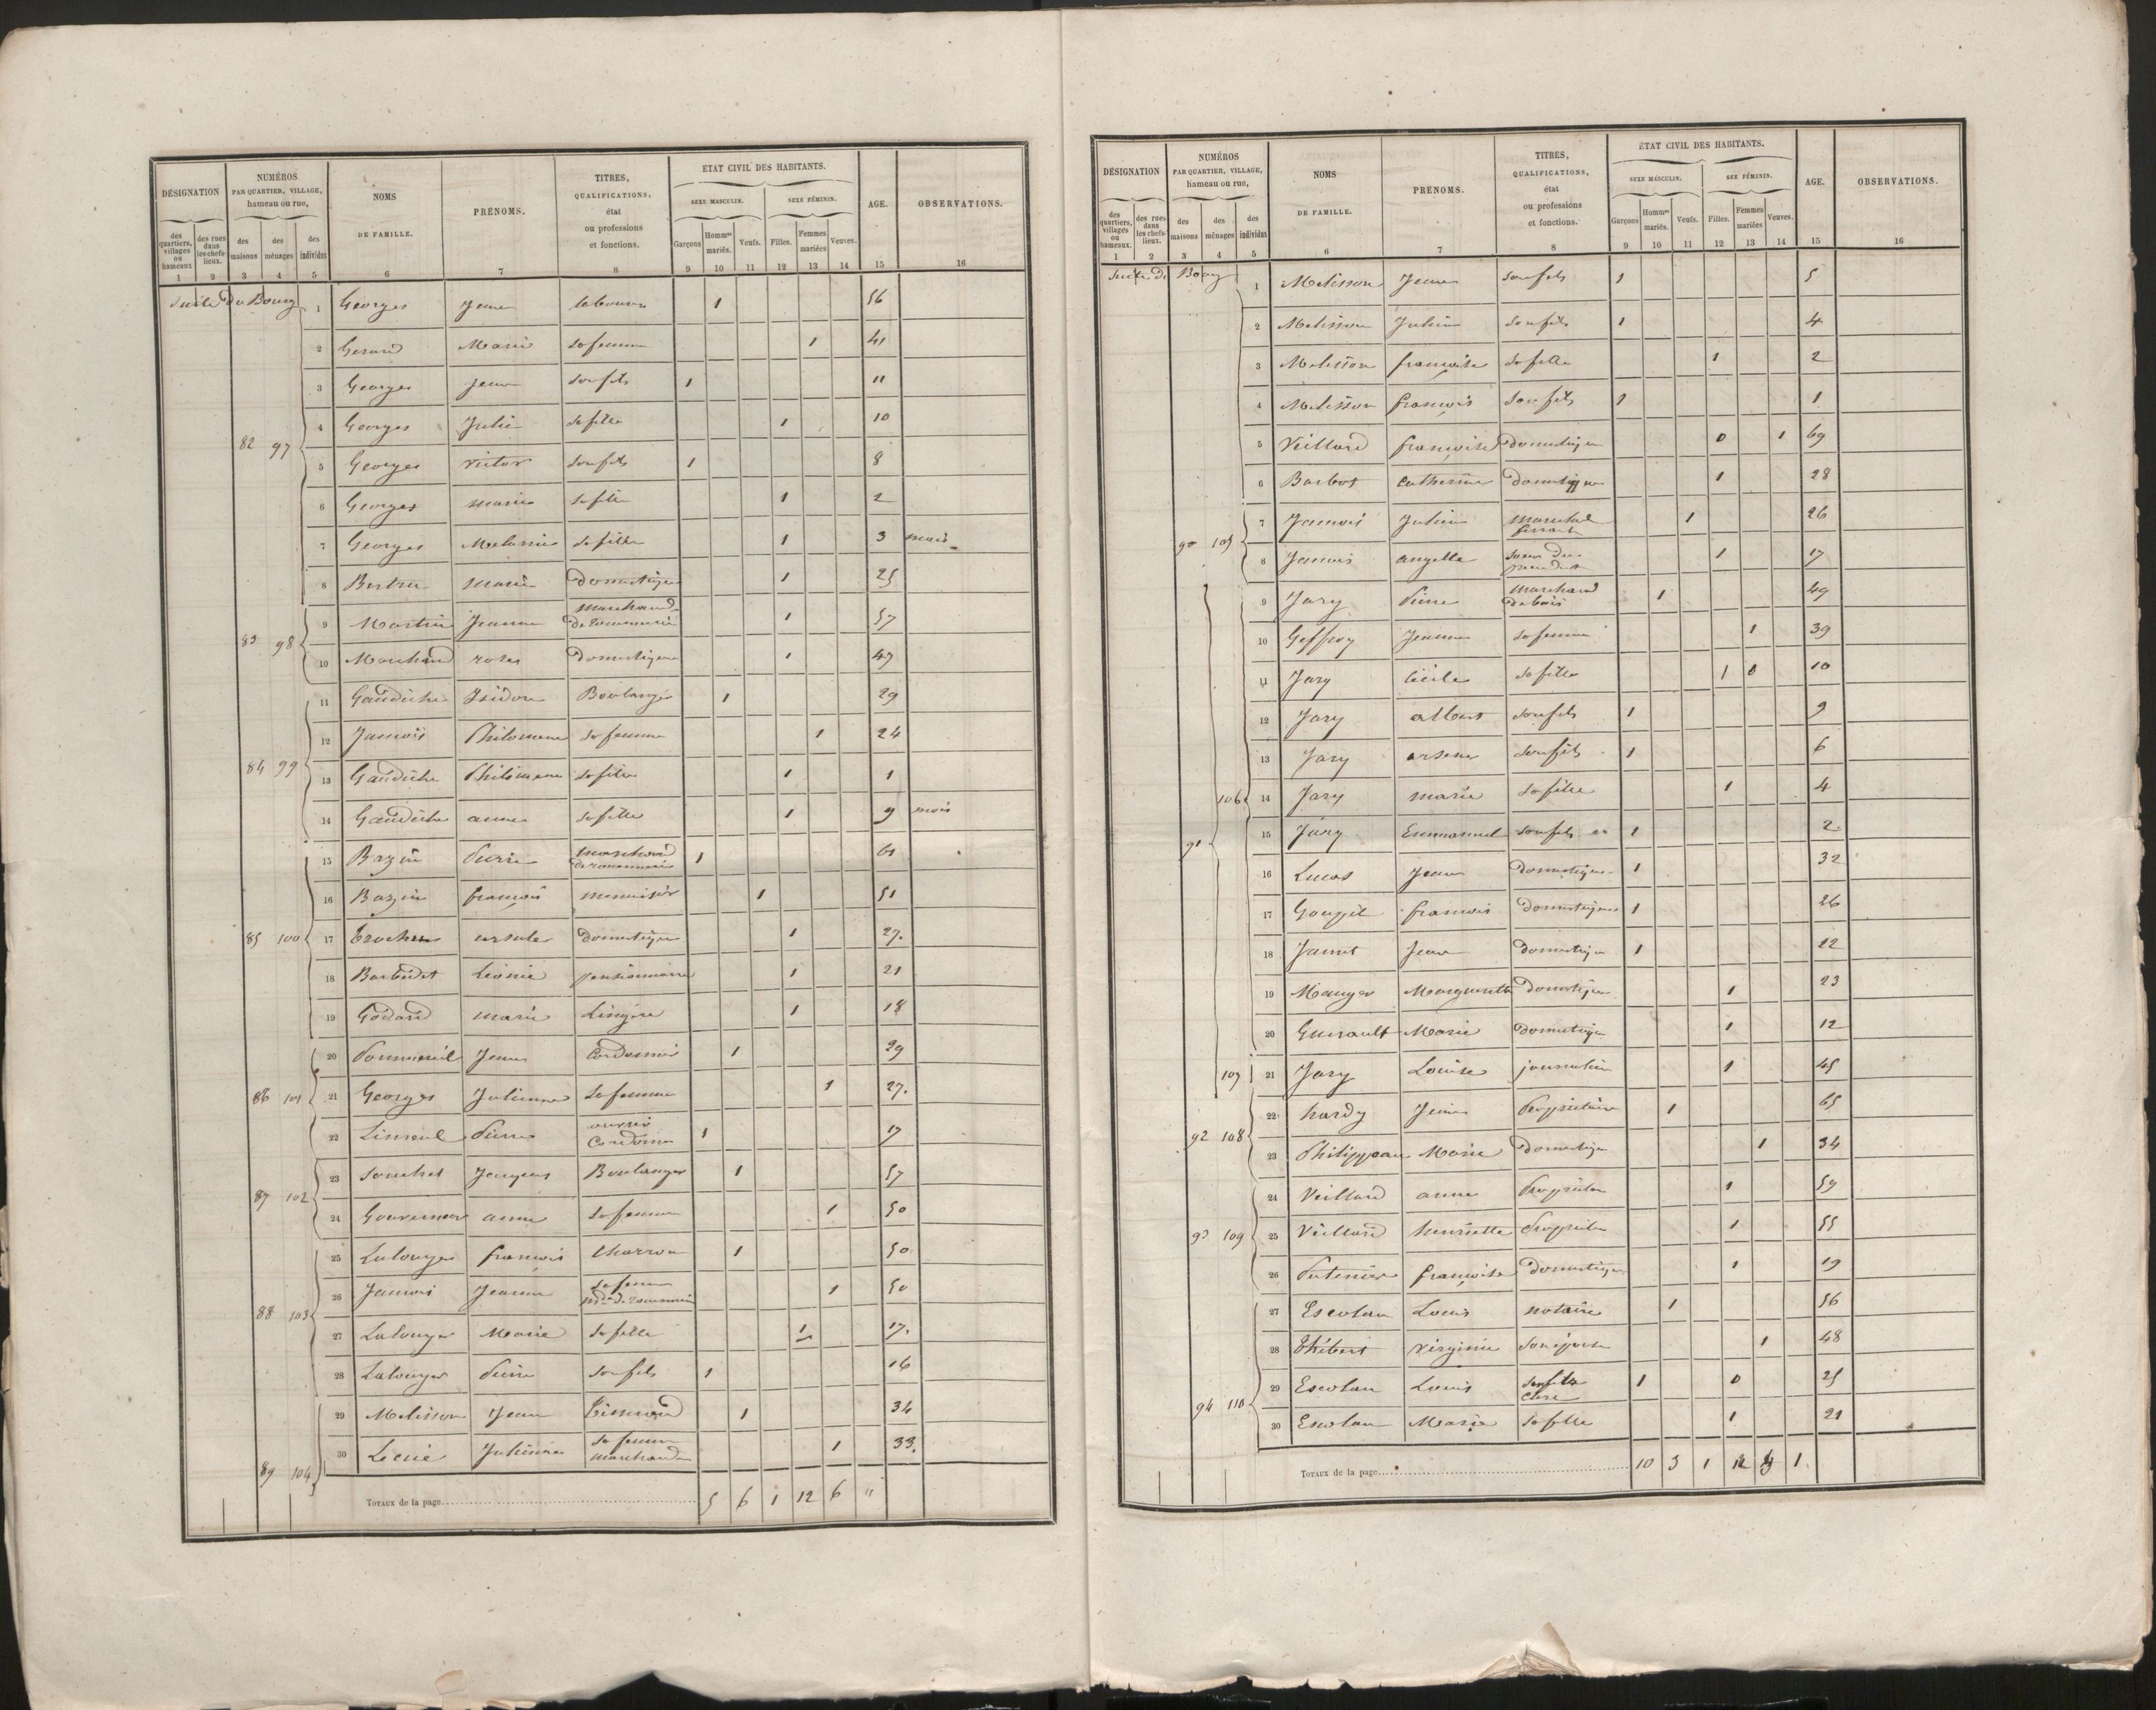 DÉSIGNATION
des quartiers, villages ou hameaux
des rues dans les chefs-lieux.
NUMÉROS
PAR QUARTIER, VILLAGE,
hameau ou rue,
des maisons
des ménages
des individus
NOMS
DE FAMILLE.
PRÉNOMS.
TITRES,
QUALIFICATIONS,
état
ou professions
et fonctions.
ETAT CIVIL DES HABITANTS.
SEXE MASCULIN.
SEXE FÉMININ.
Garçons
Hommes mariés.
Veufs.
Filles.
Femmes mariées
Veuves.
AGE.
OBSERVATIONS.
1 2 3 4 5 6 7 8 9 10 11 12 13 14 15 16
Suite du Bourg
1 Georges Jean 1 56
2 Gerard Marie sa femme 1 41
3 Georges jean son fils 1 11
4 Georges Julie sa fille 1 10
82 97
5 Georges victor son fils 1 8
6 Georges marie sa fille 1 2
7 Georges Melanie sa fille 1 3 mois
8 marie Domestique 1 25
9 Martin Jeanne marchand de rouennerie 1 57
83 98
10 Marchand roses Domestique 1 47
11 Gaudiche Isidore Boulanger 1 29
12 Jamois Philomene sa femme 1 24
84 99
13 Gaudiche Philomene sa fille 1 1
14 Gaudiche anne sa fille 1 9 mois
15 Bazin Pierre marchand de rouennerie 1 61
16 Bazin françois menuisier 1 51
85 100
17 ursule domestique 1 27.
18 Barbedet Léonie pensionnaire 1 21
19 Godard marie Lingère 1 18
20 Jean Cordonnier 1 29
86 101
21 Georges Julienne sa femme 1 27.
22 Limeul Pierre ouvrier Cordonnier 1 17
23 Souchet Jacques Boulanger 1 57
87 102
24 Gouverneur anne sa femme 1 50
25 Lalouyer françois Charron 1 50
26 Jamois Jeanne sa femme mde de rouennerie 1 50
88 103
27 Lalouyer Marie sa fille 1 17.
28 Lalouyer Pierre son fils 1 16
29 Melisson Jean Tisserand 1 34
30 Julienne sa femme marchande 1 33.
89 104
TOTAUX de la page 5 6 1 12 6 "
DÉSIGNATION
des quartiers, villages ou hameaux.
des rues dans les chefs-lieux.
NUMÉROS
PAR QUARTIER, VILLAGE,
hameau ou rue,
des maisons
des ménages
des individus
NOMS
DE FAMILLE.
PRÉNOMS.
TITRES,
QUALIFICATIONS,
état
ou professions
et fonctions.
ÉTAT CIVIL DES HABITANTS.
SEXE MASCULIN.
SEXE FÉMININ.
Garçons
Hommes mariés.
Veufs.
Filles.
Femmes mariées
Veuves.
AGE.
OBSERVATIONS.
1 2 3 4 5 6 7 8 9 10 11 12 13 14 15 16
Suite du Bourg
1 Melisson Jean son fils 1 5
2 Melisson Julien son fils 1 4
3 Melisson françoise sa fille 1 2
4 Melisson françois son fils 1 1
5 Veillard françoise Domestique 0 1 69
6 Barbot Catherine Domestique 1 28
7 Jamois Julien Marechal ferrant 1 26
90 105
8 Jamois angelle soeur du precedent 1 17
9 Jary Pierre Marchand de bois 1 49
10 Geffroy Jeanne sa femme 1 39
11 Jary Cécile sa fille 1 0 10
12 Jary albert son fils 1 9
13 Jary arsene son fils 1 6
106
14 Jary marie sa fille 1 4
91
15 Jary Emmanuel son fils 1 2
16 Lucas Jean Domestique 1 32
17 Goupil françois Domestique 1 26
18 Jamet Jean Domestique 1 22
19 Mauger Marguerite Domestique 1 23
20 Guerault Marie Domestique 1 12
107
21 Jary Louise journalière 1 45
22 hardy Jean Propriétaire 1 65
92 108
23 Philippeau Marie Domestique 1 34
24 Veillard anne Propriétaire 1 59
93 109
25 Veillard henriette Propriétaire 1 55
26 françoise Domestique 1 19
27 Escolan Louis notaire 1 56
28 Thébert virginie son épouse 1 48
29 Escolan Louis son fils clerc 1 0 25
94 110
30 Escolan Marie sa fille 1 21
TOTAUX de la page 10 3 1 12 1